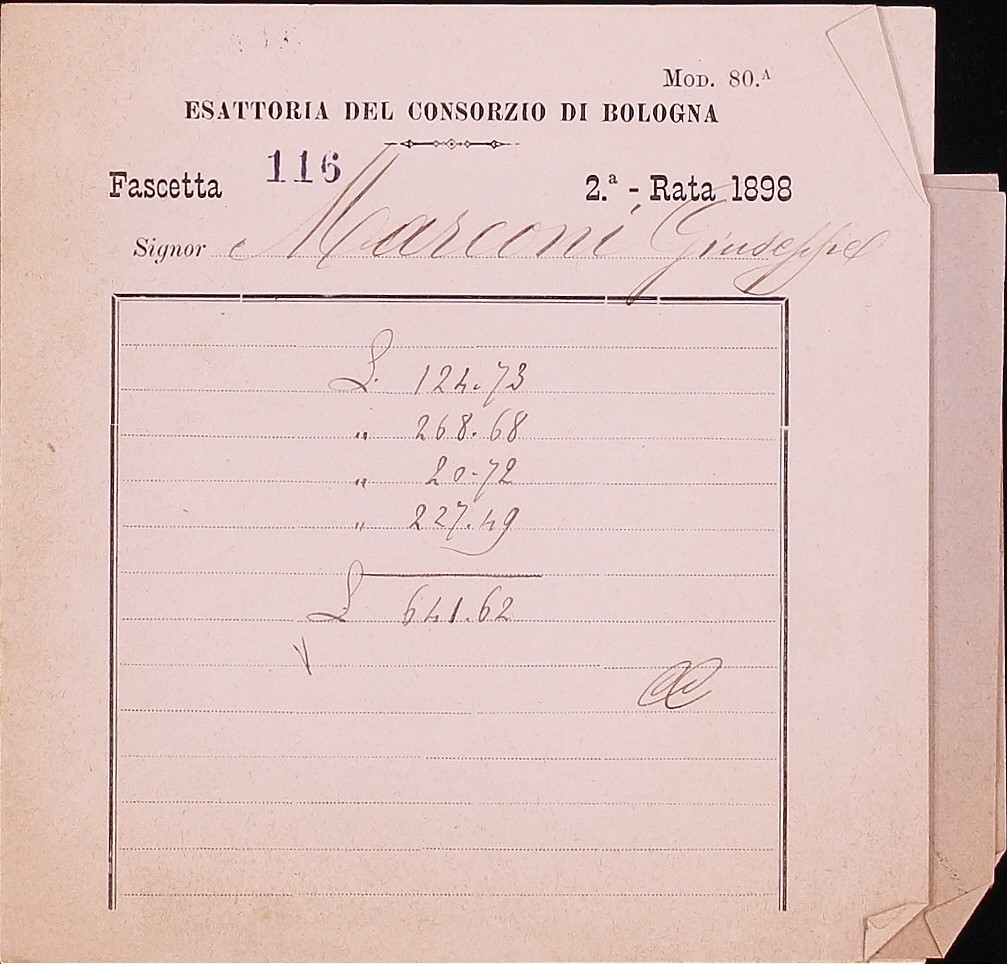 Mod. 80.A
ESATTORIA DEL CONSORZIO DI BOLOGNA
Fascetta 116 2.a - Rata 1898
Signor Marconi Giuseppe
L. 124.73
" 268.68
" 20.72
" 227.49
L 641.62